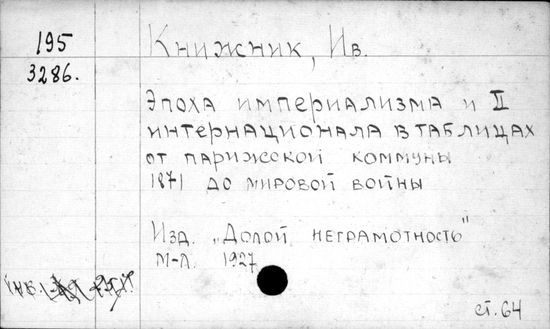 195
3286.
Книжник, Ив.
Эпоха империализма и II
интернационала в таблицах
от парижской коммуны
1871 до мировой войны
Изд. „Долой неграмотность"
М-Л. 1927
инв.
ст. 64